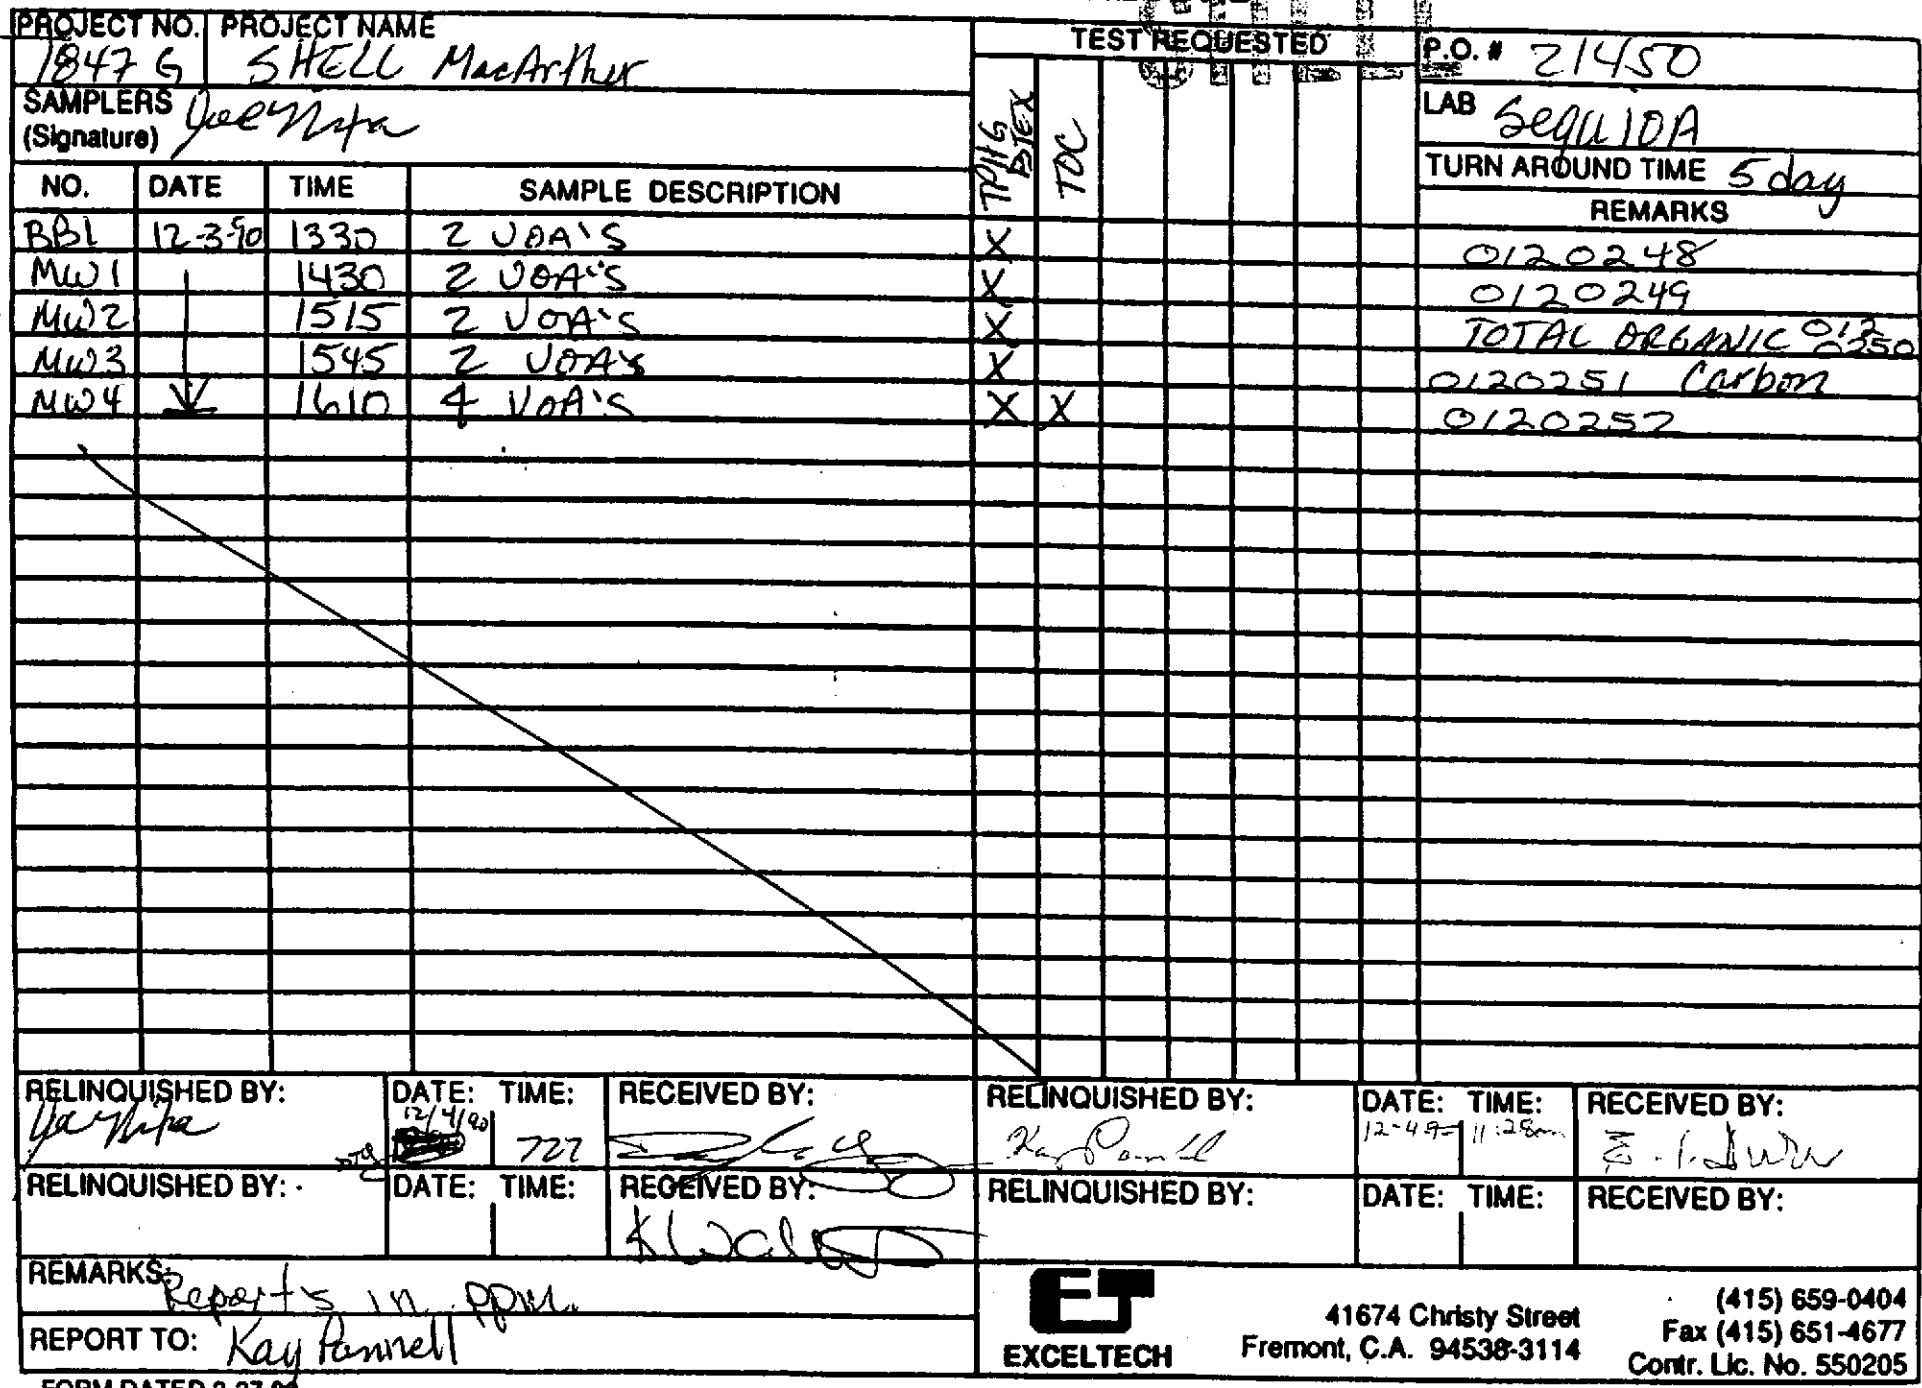 PROJECT NO. PROJECT NAME
1847 G SHELL MacArthur
SAMPLERS
(Signature)
TEST REQUESTED
TPHG
BTEX
TOC
P.O. # 21450
LAB SequIOA
TURN AROUND TIME 5 day
NO. DATE TIME SAMPLE DESCRIPTION
REMARKS
BB1 12-3-90 1330 2 VOA'S X 0120248
MW1 1430 2 VOA'S X 0120249
MW2 1515 2 VOA'S X TOTAL ORGANIC 012
0250
MW3 1545 2 VOA's X 0120251 Carbon
MW4 1610 4 VOA'S X X 0120252
RELINQUISHED BY: DATE: TIME: RECEIVED BY: RELINQUISHED BY: DATE: TIME: RECEIVED BY:
12/4/90 727 Kay Pannell 11:28am
RELINQUISHED BY: DATE: TIME: RECEIVED BY: RELINQUISHED BY: DATE: TIME: RECEIVED BY:
REMARKS: Reports in ppm.
REPORT TO: Kay Pannell
ET
EXCELTECH
41674 Christy Street
Fremont, C.A. 94538-3114
(415) 659-0404
Fax (415) 651-4677
Contr. Lic. No. 550205